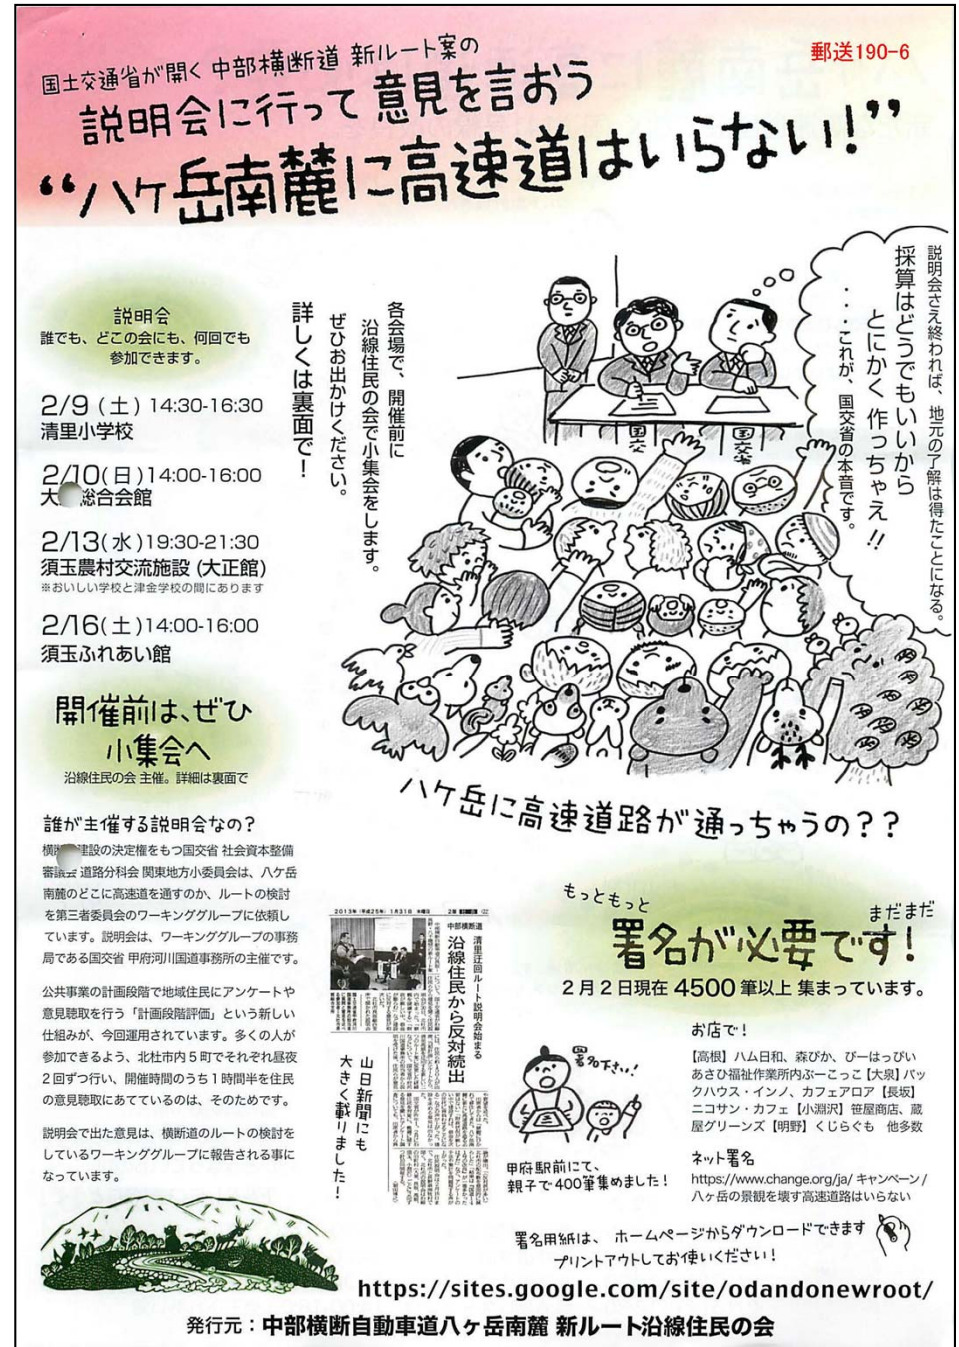 郵送190-6
国土交通省が開く 中部横断道 新ルート案の
説明会に行って 意見を言おう
“八ヶ岳南麓に高速道はいらない!”
説明会
誰でも、どこの会にも、何回でも
参加できます。
2/9 (土) 14:30-16:30
清里小学校
2/10(日)14:00-16:00
大 総合会館
2/13(水)19:30-21:30
須玉農村交流施設 (大正館)
※おいしい学校と津金学校の間にあります
2/16(土)14:00-16:00
須玉ふれあい館
各会場で、開催前に
沿線住民の会で小集会をします。
ぜひお出かけください。
詳しくは裏面で!
説明会さえ終われば、地元の了解は得たことになる。
採算はどうでもいいから
とにかく 作っちゃえ!!
・・・これが、国交省の本音です。
国交
国交省
開催前は、ぜひ
小集会へ
沿線住民の会 主催。詳細は裏面で
八ケ岳に高速道路が通っちゃうの??
誰が主催する説明会なの?
横断 建設の決定権をもつ国交省 社会資本整備
審議会 道路分科会 関東地方小委員会は、八ケ岳
南麓のどこに高速道を通すのか、ルートの検討
を第三者委員会のワーキンググループに依頼し
ています。説明会は、ワーキンググループの事務
局である国交省 甲府河川国道事務所の主催です。
公共事業の計画段階で地域住民にアンケートや
意見聴取を行う「計画段階評価」という新しい
仕組みが、今回運用されています。多くの人が
参加できるよう、北杜市内5町でそれぞれ昼夜
2回ずつ行い、開催時間のうち1時間半を住民
の意見聴取にあてているのは、そのためです。
説明会で出た意見は、横断道のルートの検討を
しているワーキンググループに報告される事に
なっています。
2013年(平成25年)1月31日 木曜日
中部横断道
清里迂回ルート説明会始まる
沿線住民から反対続出
山日新聞にも
大きく載りました!
もっともっと
まだまだ
署名が必要です!
2月2日現在 4500筆以上 集まっています。
署名下さい!
甲府駅前にて、
親子で400筆集めました!
お店で!
【高根】ハム日和、森ぴか、ぴーはっぴい
あさひ福祉作業所内ぶーこっこ【大泉】バッ
クハウス・インノ、カフェアロア【長坂】
ニコサン・カフェ【小淵沢】笹屋商店、蔵
屋グリーンズ【明野】くじらぐも 他多数
ネット署名
https://www.change.org/ja/ キャンペーン/
八ヶ岳の景観を壊す高速道路はいらない
署名用紙は、ホームページからダウンロードできます
プリントアウトしてお使いください!
https://sites.google.com/site/odandonewroot/
発行元:中部横断自動車道八ヶ岳南麓 新ルート沿線住民の会